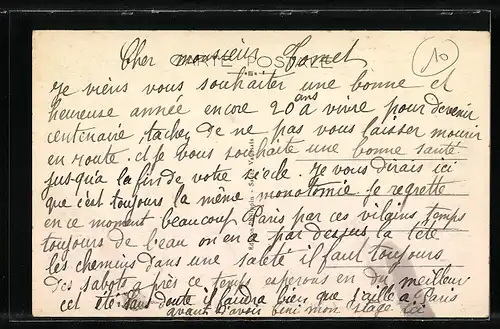 Cher monsieur
CARTE POSTALE
10
Je viens vous souhaiter une bonne et
heureuse année encore 20 ans a vivre pour devenir
centenaire tachez de ne pas vous laisser mourir
en route. et je vous souhaite une bonne santé
jusqu'a la fin de votre siecle. Je vous dirais ici
que c'est toujours la même monotomie. Je regrette
en ce moment beaucoup Paris par ces vilains temps
toujours de beau on en a par dessus la tête
les chemins dans une saleté il faut toujours
des sabots après ce temps esperons en du meilleur
cet été. sans doute il faudra bien que j'aille a Paris
avant d'avoir fini mon stage ici